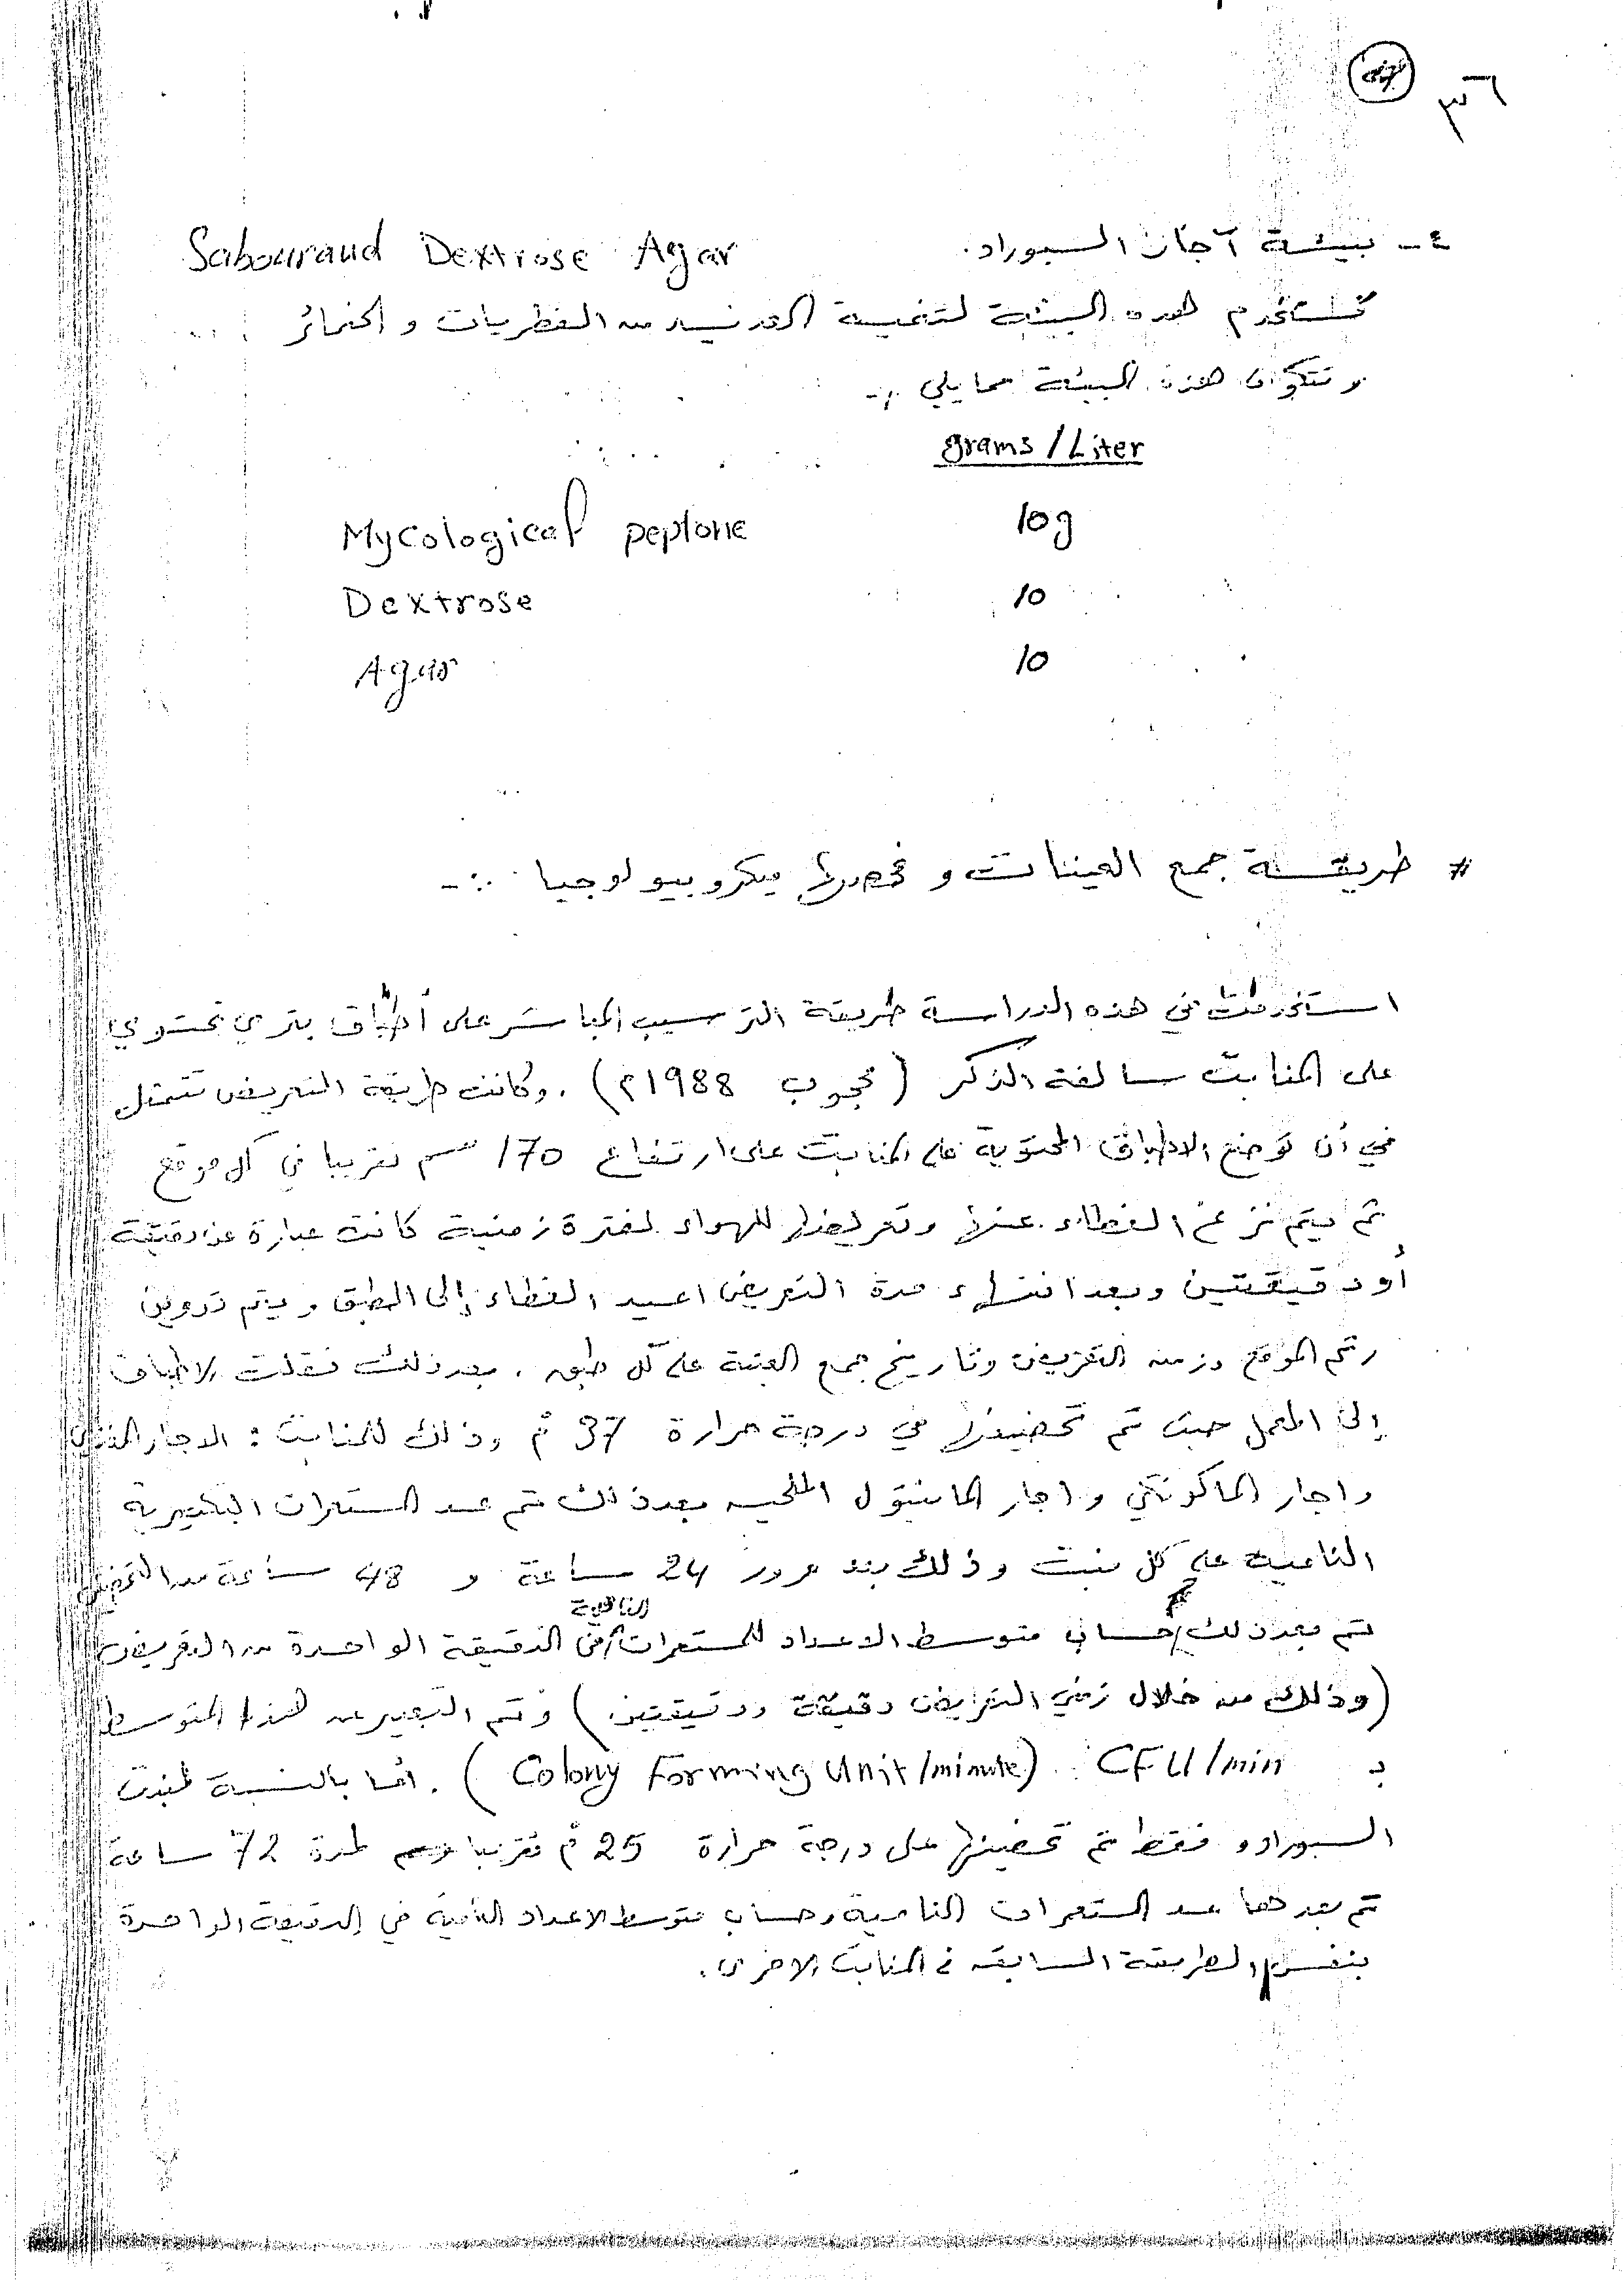 ٣٦
٤- بيئة آجار السبوراد. Sabouraud Dextrose Agar
تستخدم هذه البيئة لتنمية العديد من الفطريات و الخمائر
و تتكون هذه البيئة مما يلي :-
grams / Liter
Mycological peptone 10g
Dextrose 10
Agar 10
# طريقة جمع العينات و فحصها ميكروبيولوجيا :-
استخدمت في هذه الدراسة طريقة الترسيب المباشر على أطباق بتري تحتوي
على المنابت سالفة الذكر ( محجوب 1988م ) . وكانت طريقة التعريض تتمثل
في أن توضع الاطباق المحتوية على المنابت على ارتفاع 170 سم تقريبا في كل موقع
ثم يتم نزع الغطاء عنها وتعريضها للهواء لفترة زمنية كانت عبارة عن دقيقة
أو دقيقتين وبعد انتهاء مدة التعريض اعيد الغطاء إلى الطبق و يتم تدوين
رقم الموقع وزمن التعريض وتاريخ جمع العينة على كل طبق . بعد ذلك نقلت الاطباق
إلى المعمل حيث تم تحضينها في درجة حرارة 37 مْ وذلك للمنابت : الاجار المغذي
واجار الماكونكي و اجار المانيتول الملحي بعد ذلك تم عد المستعمرات البكتيرية
النامية على كل منبت وذلك بعد مرور 24 ساعة و 48 ساعة من التحضين
تم بعد ذلك حساب متوسط الاعداد للمستعمرات النامية في الدقيقة الواحدة من التعريض
(وذلك من خلال زمني التعريض دقيقة ودقيقتين ) وتم التعبير عن هذا المتوسط
بـ CFU/min (Colony Forming Unit/minute) . أما بالنسبة لمنبت
السبورادو فقط تم تحضينها على درجة حرارة 25 مْ تقريبا لمدة 72 ساعة
تم بعدها عد المستعمرات النامية وحساب متوسط الاعداد النامية في الدقيقة الواحدة
بنفس الطريقة السابقة في المنابت الاخرى .